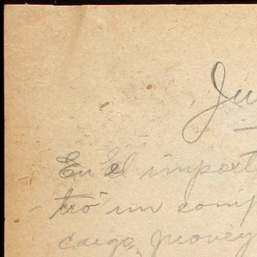 Ju
En el import
tró un comp
cargo, provey